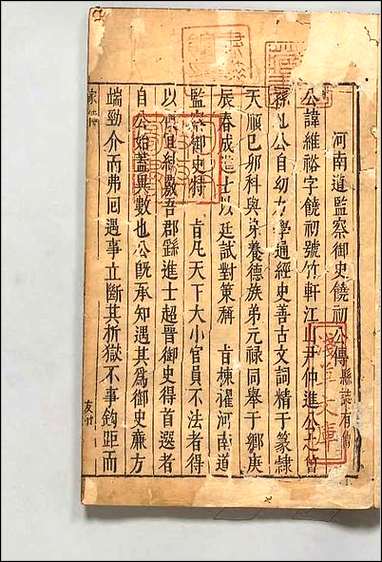 河南道監察御史饒初公傳縣誌有
公諱維裕字饒初號竹軒江山尹仲進公之曾
孫也公自幼力學通經史善古文詞精于篆隸
天順己卯科與弟養德族弟元祿同舉于鄉庚
辰春成進士以廷試對策稱 旨棟濯河南道
監察御史特 旨凡天下大小官員不法者得
以便宜糾劾吾郡繇進士超晉御史得首選者
自公始蓋異數也公旣承知遇其為御史廉方
端勁介而弗囘遇事立斷其析獄不事鉤距而
淺草文庫